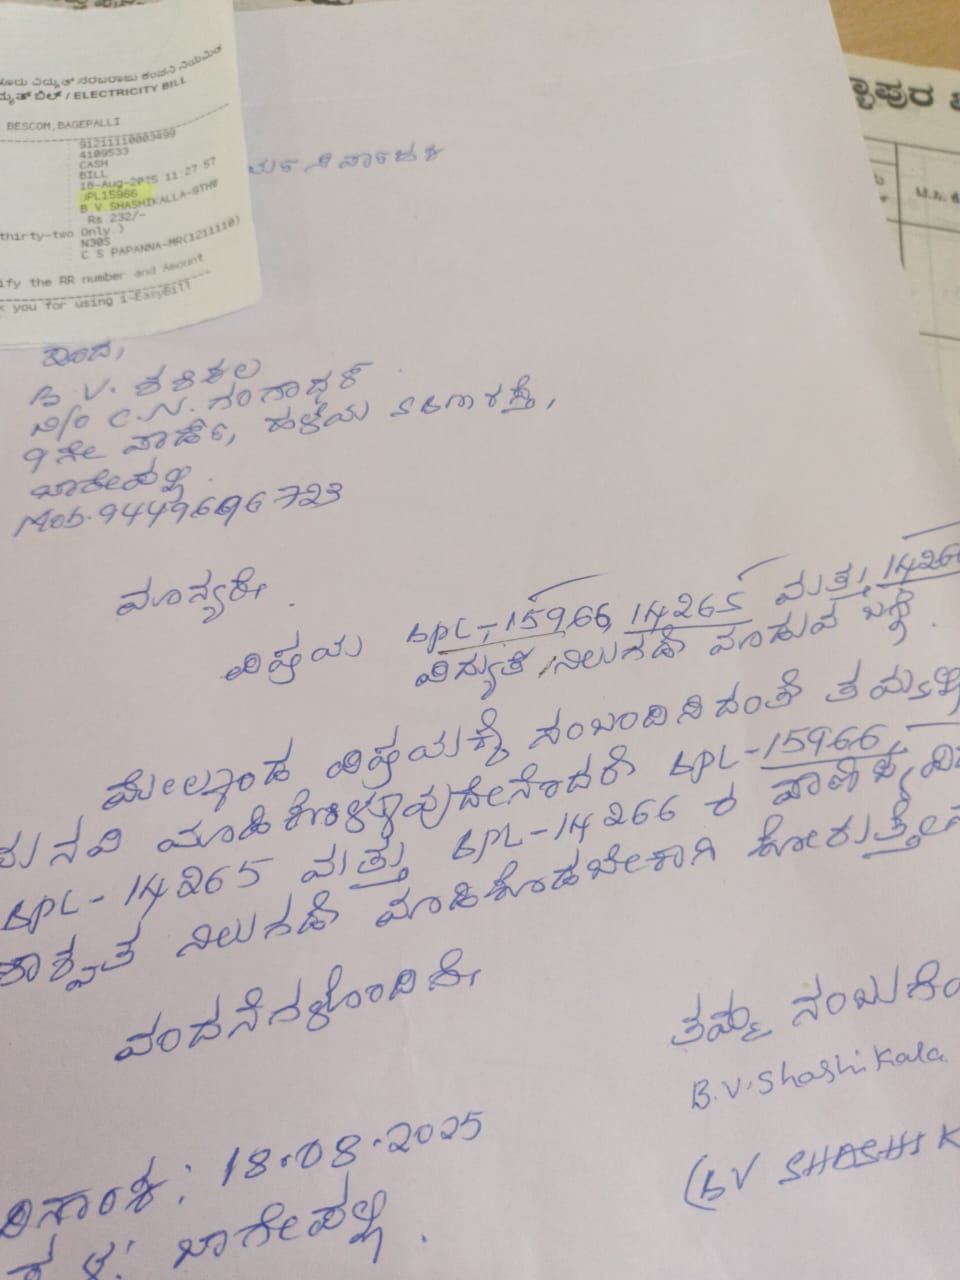 ವಿದ್ಯುತ್ ಸರಬರಾಜು ಕಂಪನಿ ನಿಯಮಿತ
ಬಿಲ್ / ELECTRICITY BILL
BESCOM, BAGEPALLI
91211110003499
4109533
CASH
BILL
18-Aug-2025 11 27 57
JPL15966
B V SHASHIKALLA-9THW
Rs.232/-
thirty-two Only.)
N30S
C S PAPANNA-MR(1211110)
ify the RR number and Amount
k you for using i-EasyBill
ಇಂದ,
B V. ಶಶಿಕಲ
C.N. ಗಂಗಾಧರ್
9ನೇ ವಾರ್ಡ್, ಹಳೆಯ
ಬಾಗೇಪಲ್ಲಿ.
Mob.9449696723
ಮಾನ್ಯರೇ.
ವಿಷಯ BPL-15966, 14265 ಮತ್ತು 14266
ವಿದ್ಯುತ್ ನಿಲುಗಡೆ ಮಾಡುವ ಬಗ್ಗೆ.
ಮೇಲ್ಕಂಡ ವಿಷಯಕ್ಕೆ ಸಂಬಂದಿಸಿದಂತೆ ತಮ್ಮಲ್ಲಿ
ಮನವಿ ಮಾಡಿಕೊಳ್ಳುವುದೇನೆಂದರೆ BPL-15966,
BPL-14265 ಮತ್ತು BPL-14266 ರ ವಾಣಿಜ್ಯ
ಶಾಶ್ವತ ನಿಲುಗಡೆ ಮಾಡಿಕೊಡಬೇಕಾಗಿ ಕೋರುತ್ತೇ
ವಂದನೆಗಳೊಂದಿಗೆ,
ತಮ್ಮ ನಂಬುಗೆಯ
B.V.Shashikala
(B V SHASHIK
ದಿನಾಂಕ: 18.08.2025
ಸ್ಥಳ: ಬಾಗೇಪಲ್ಲಿ.